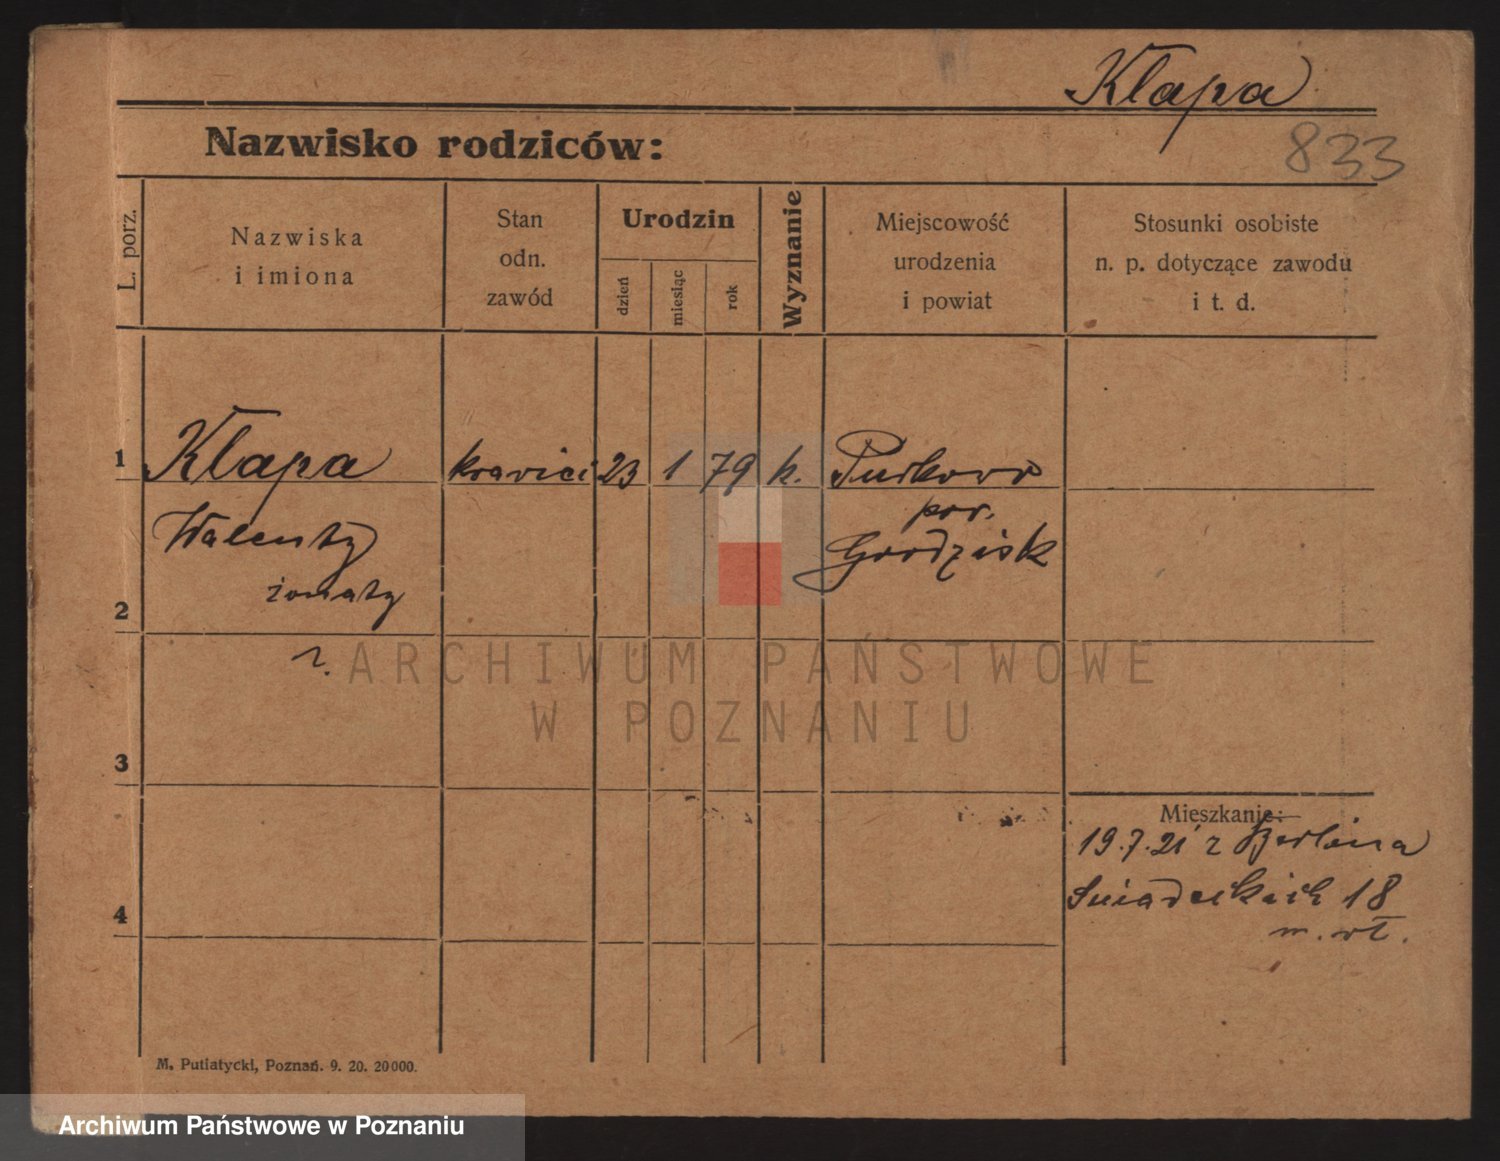 Kłapa
Nazwisko rodziców:
833
L. porz.
Nazwiska
i imiona
Stan
odn.
zawód
Urodzin
dzień
miesiąc
rok
Wyznanie
Miejscowość
urodzenia
i powiat
Stosunki osobiste
n. p. dotyczące zawodu
i t. d.
1 Kłapa 23 1 79 k.
Walenty pow.
Grodzisk
żonaty
2
r.
ARCHIWUM PAŃSTWOWE
W POZNANIU
3
Mieszkanie:
19.7.21 z Berlina
Śniadeckich 18
4
m. wł.
M. Putiatycki, Poznań. 9. 20. 20000.
Archiwum Państwowe w Poznaniu